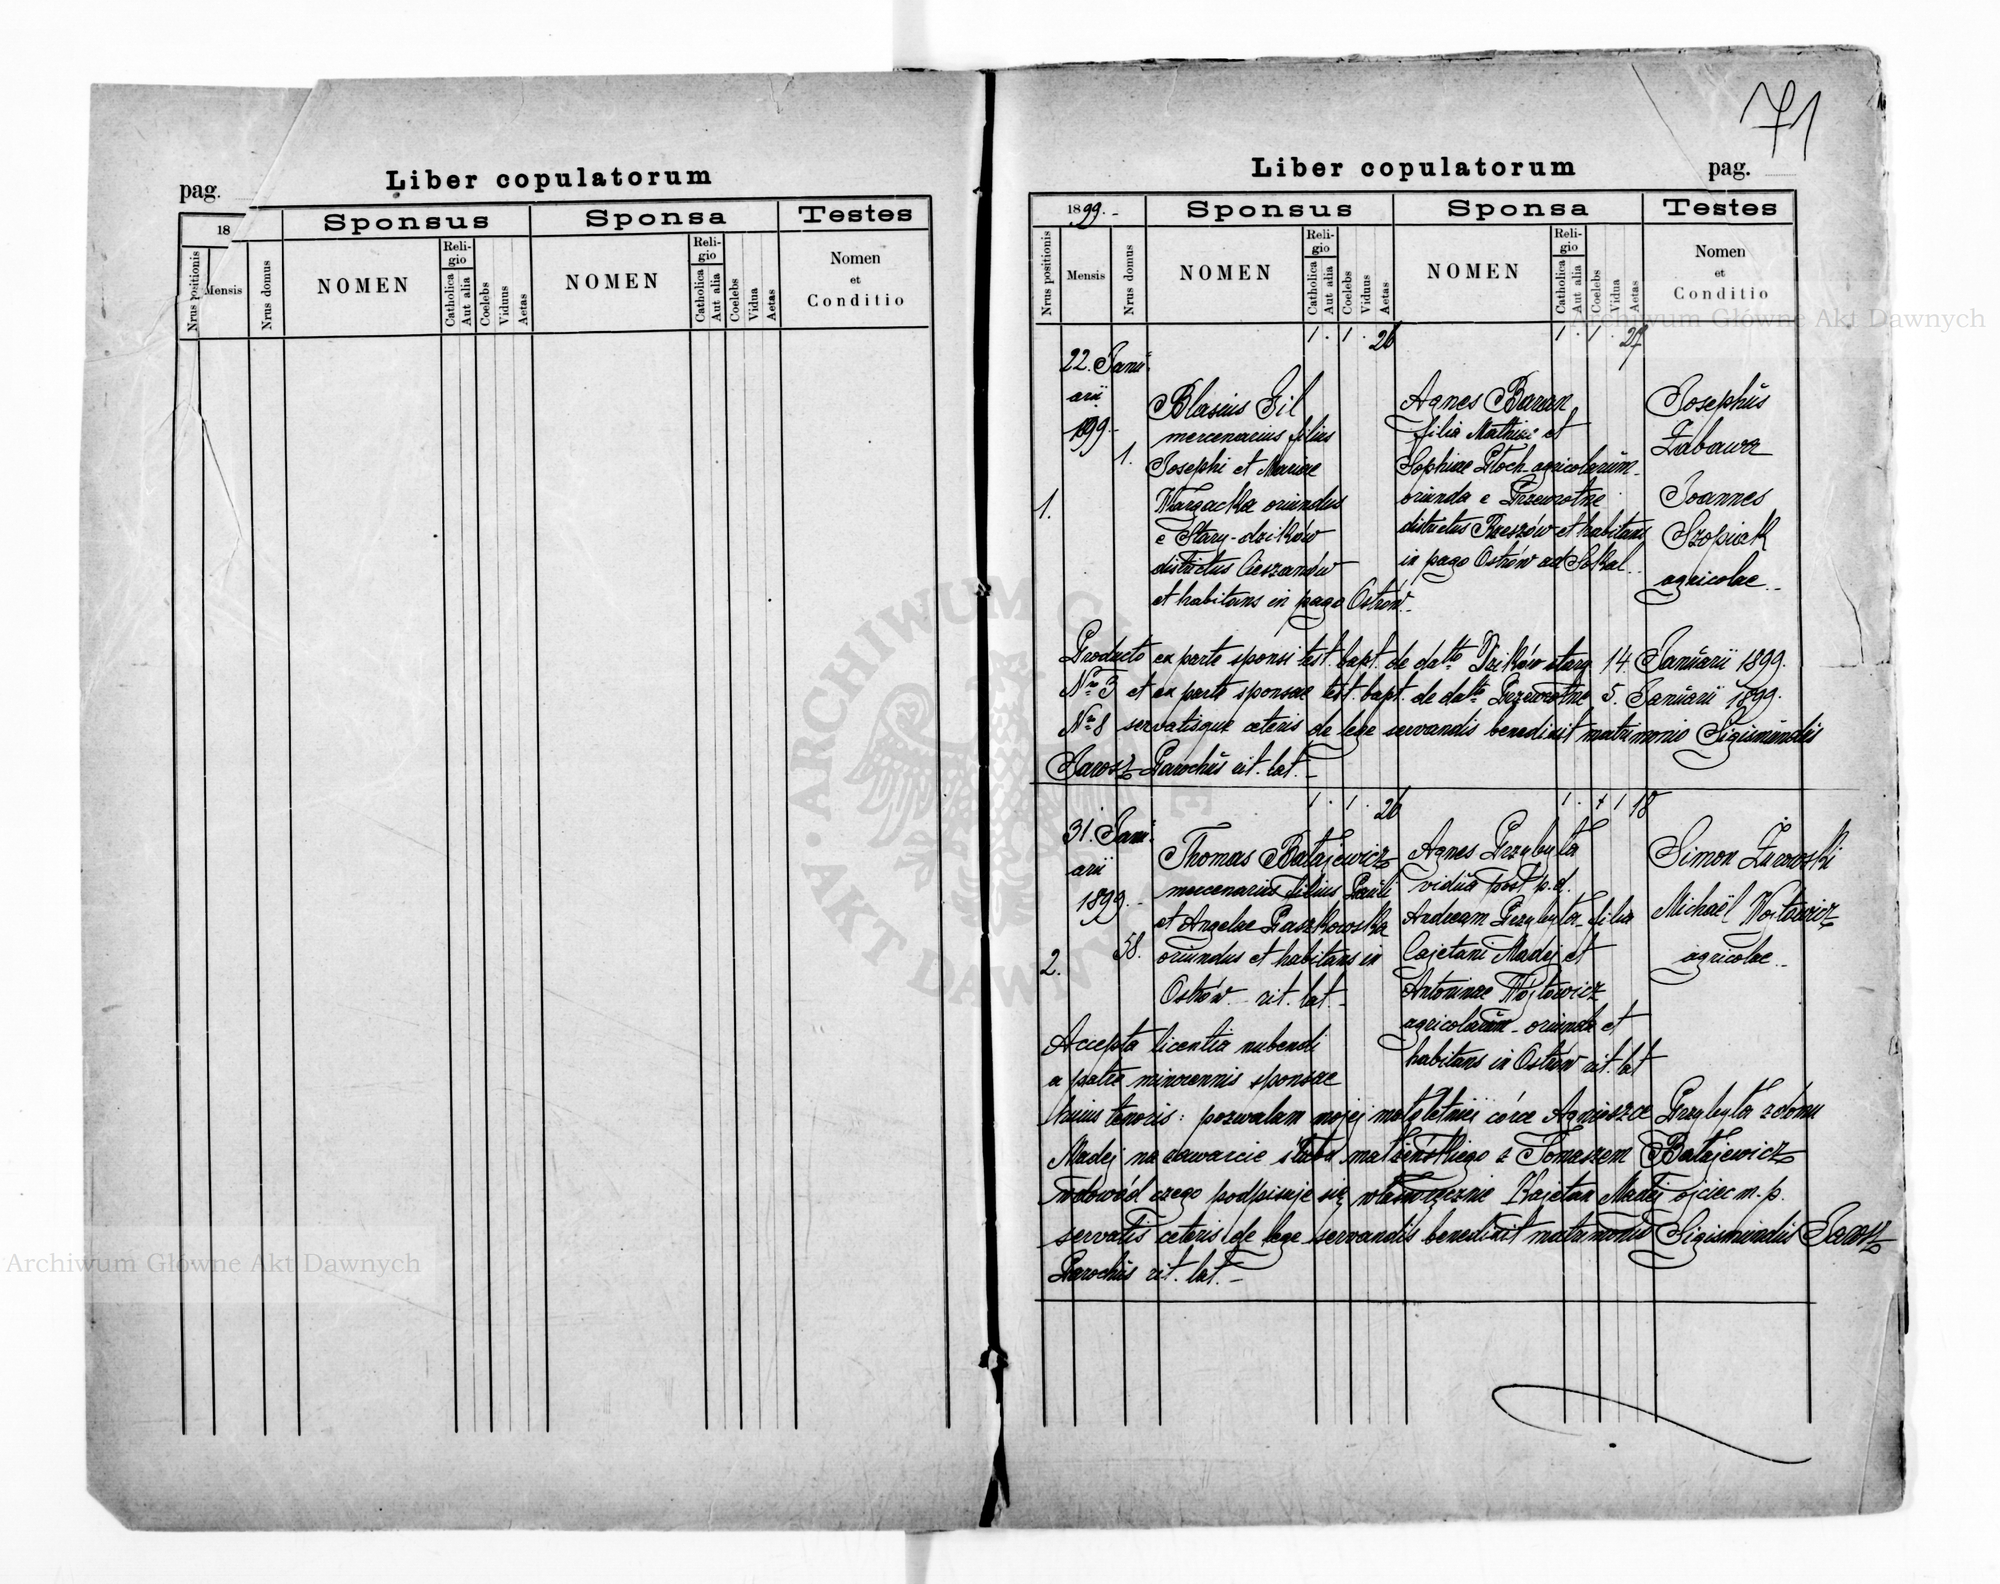 Liber copulatorum
pag.
18
Sponsus
Sponsa
Testes
Nrus positionis
Mensis
Nrus domus
NOMEN
Religio
Catholica
Aut alia
Coelebs
Viduus
Aetas
NOMEN
Religio
Catholica
Aut alia
Coelebs
Vidua
Aetas
Nomen
et
Conditio
71
Liber copulatorum
pag.
1899.-
Sponsus
Sponsa
Testes
Nrus positionis
Mensis
Nrus domus
NOMEN
Religio
Catholica
Aut alia
Coelebs
Viduus
Aetas
NOMEN
Religio
Catholica
Aut alia
Coelebs
Vidua
Aetas
Nomen
et
Conditio
1.
22. Janu-
arii
1.
1 . 1 . 26
Blasius Gil
mercenarius filius
Josephi et Mariae
oriundus
e Stary-dzików
districtus Cieszanów
et habitans in pago Ostrów.-
1 . 1 . 27
Agnes Baran
filia Mathiae et
Sophiae Ptoch agricolarum-
oriunda e Przewrotne
districtus Rzeszów et habitans
in pago Ostrów ad Sokal.-
Josephus
Zabawa
Joannes
Szopiak
agricolae.-
Producto ex parte sponsi test. bapt. de datto Dzików stary 14 Januarii 1899.
Nro 3 et ex parte sponsae test. bapt. de datto Przewrotne 5. Januarii 1899.
Nro 8 servatisque ceteris de lege servandis benedixit matrimonio Sigismundus
Jarosz Parochus rit. lat.-
2.
31. Janu-
arii
1899.-
58.
1 . 1 . 26
Thomas Batajewicz
mercenarius filius Pauli
et Angelae Paszkowska
oriundus et habitans in
Ostrów - rit. lat.-
1 . 1 18
Agnes Przybyła
vidua post p.d.
Andream Przybyła filia
Cajetani Madej et
Antoninae Wojtowicz
agricolarum - oriunda et
habitans in Ostrów rit. lat
Simon Żurowski
Michaël Wojtowicz
agricolae.-
Accepta licentia nubendi
a patre minorennis sponsae
huius tenoris: pozwalam mojej małoletniej córce Agnieszce Przybyła z domu
Madej na zawarcie ślubu małżeńskiego z Tomaszem Batajewicz
w dowód czego podpisuje się własnoręcznie Kajetan Madej ojciec m.p.
servatis ceteris de lege servandis benedixit matrimonio Sigismundus Jarosz
Parochus rit. lat.-
Archiwum Główne Akt Dawnych
ARCHIWUM GŁÓWNE AKT DAWNYCH
Archiwum Główne Akt Dawnych